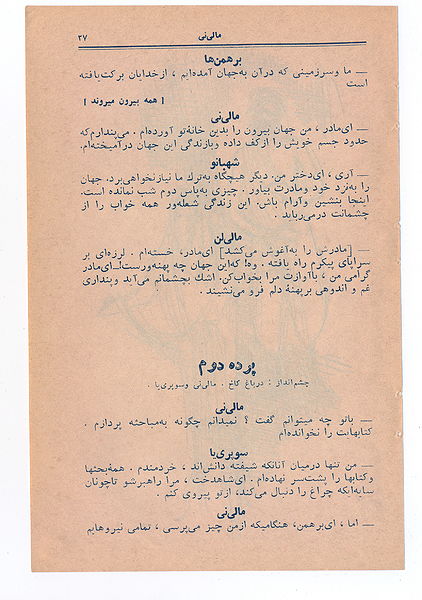 مالی‌نی
۲۷
برهمن‌ها
— ما وسرزمینی که درآن به‌جهان آمده‌ایم ، ازخدایان برکت‌یافته
است
[ همه بیرون میروند ]
مالی‌نی
— ای‌مادر ، من جهان بیرون را بدین خانه‌تو آورده‌ام . می‌پندارم‌که
حدود جسم خویش را ازکف داده وبازندگی این جهان درآمیخته‌ام.
شهبانو
— آری ، ای‌دختر من. دیگر هیچگاه به‌ترك ما نیازنخواهی‌برد. جهان
را به‌نزد خود ومادرت بیاور . چیزی به‌پاس دوم شب نمانده است.
اینجا بنشین وآرام باش. این زندگی شعله‌ور همه خواب را از
چشمانت درمی‌رباید .
مالی‌لن
— [مادرش را به‌آغوش می‌کشد] ای‌مادر، خسته‌ام . لرزه‌ای بر
سراپای پیکرم راه یافته . وه! که‌این جهان چه پهنه‌ورست!—ای‌مادر
گرامی من ، باآوازت مرا بخواب‌کن. اشك بچشمانم می‌آید وپنداری
غم و اندوهی برپهنهٔ دلم فرو می‌نشیند .
پرده دوم
چشم‌انداز : درباغ کاخ . مالی‌نی وسوپری‌یا .
مالی‌نی
— باتو چه میتوانم گفت ؟ نمیدانم چگونه به‌مباحثه پردازم .
کتابهایت را نخوانده‌ام
سوپری‌یا
— من تنها درمیان آنانکه شیفته دانش‌اند ، خردمندم . همهٔ‌بحثها
وکتابها را پشت‌سر نهاده‌ام . ای‌شاهدخت ، مرا راهبرشو تاچونان
سایه‌ایکه چراغ را دنبال می‌کند، ازتو پیروی کنم .
مالی‌نی
— اما ، ای‌برهمن، هنگامیکه ازمن چیز می‌پرسی ، تمامی نیروهایم